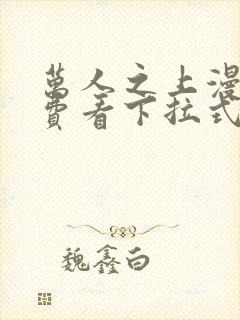 萬人之上漫
費看下拉式
魏鑫白